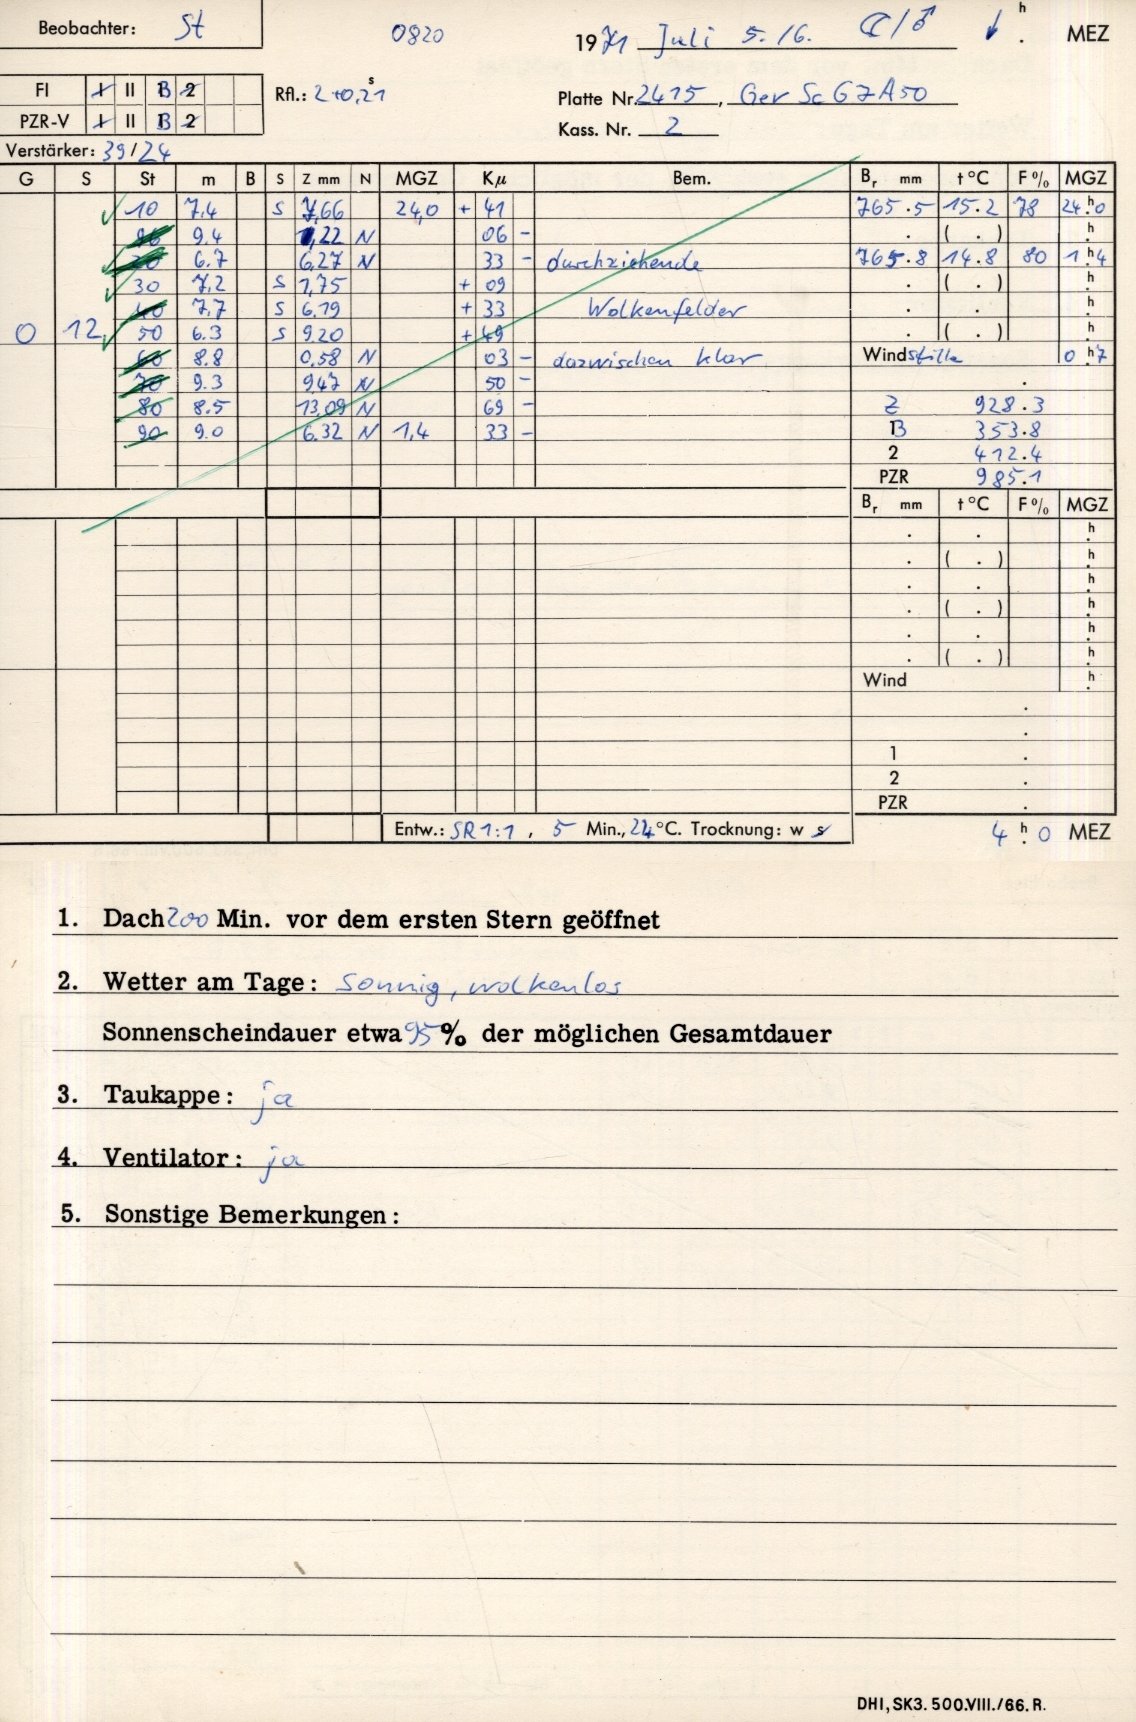 Beobachter: St 0820 1971 Juli 5./6. ☾/♂ ↓ h . MEZ
FI I II B 2 Rfl.: 2+0,21 s Platte Nr. 2415, Gev Sc G7A50
PZR-V I II B 2 Kass. Nr. 2
Verstärker: 39/24
G S St m B S Z mm N MGZ Kµ Bem. Br mm t °C F % MGZ
10 7.4 S 7,66 24,0 + 41 765.5 15.2 78 24.h0
9.4 1,22 N 06 - . ( . ) .h
20 6.7 6,27 N 33 - durchziehende 765.8 14.8 80 1.h4
30 7,2 S 1,75 + 09 . ( . ) .h
40 7,7 S 6.19 + 33 Wolkenfelder . . .h
0 12 50 6.3 S 9.20 + 49 . ( . ) .h
60 8.8 0,58 N 03 - dazwischen klar Windstille 0.h7
70 9.3 9,47 N 50 - .
80 8.5 13,09 N 69 - Z 928.3
90 9.0 6.32 N 1,4 33 - B 353.8
2 412.4
PZR 985.1
Br mm t °C F % MGZ
. . .h
. ( . ) .h
. . .h
. ( . ) .h
. . .h
. ( . ) .h
Wind .h
.
.
1 .
2 .
PZR .
Entw.: SR 1:1, 5 Min., 22 °C. Trocknung: w s 4 h. 0 MEZ
1. Dach 200 Min. vor dem ersten Stern geöffnet
2. Wetter am Tage: sonnig, wolkenlos
Sonnenscheindauer etwa 95 % der möglichen Gesamtdauer
3. Taukappe: ja
4. Ventilator: ja
5. Sonstige Bemerkungen:
DHI, SK3. 500.VIII./66. R.